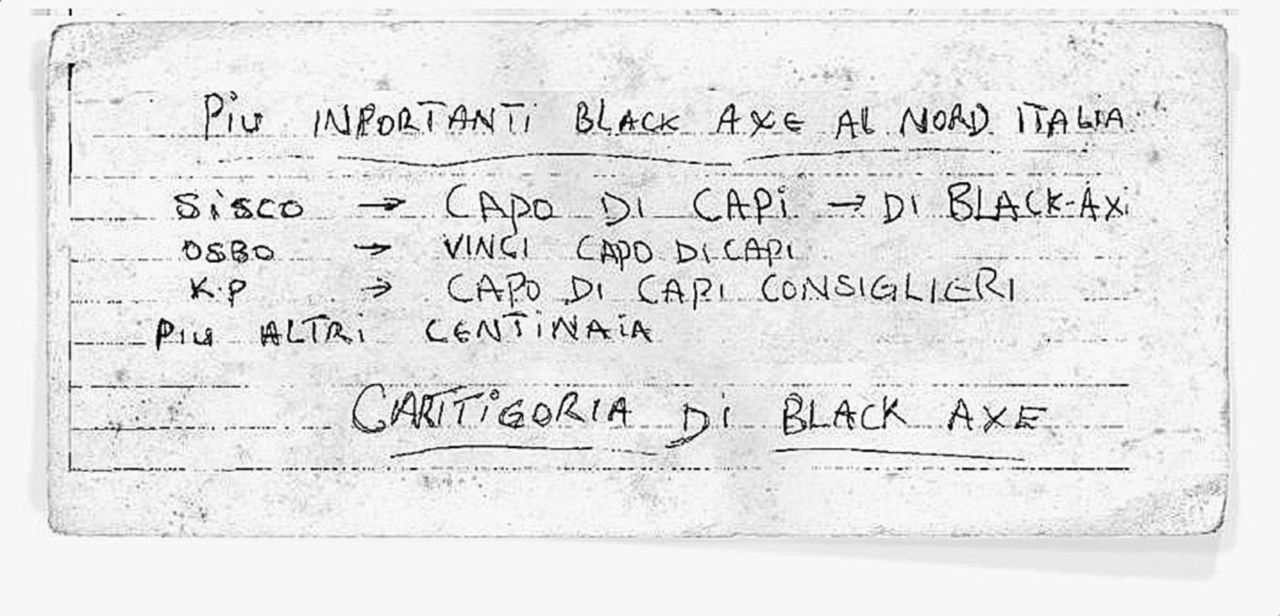 Più INPORTANTi BLACK AXE AL NORD ITALIA
SiSCO → CAPO DI CAPi → DI BLACK-AXi
OSBO → VINCI CAPO DI CAPI
K.P → CAPO DI CAPI CONSIGLIERI
PIU ALTRi CENTiNAiA
CARTTiGORIA Di BLACK AXE